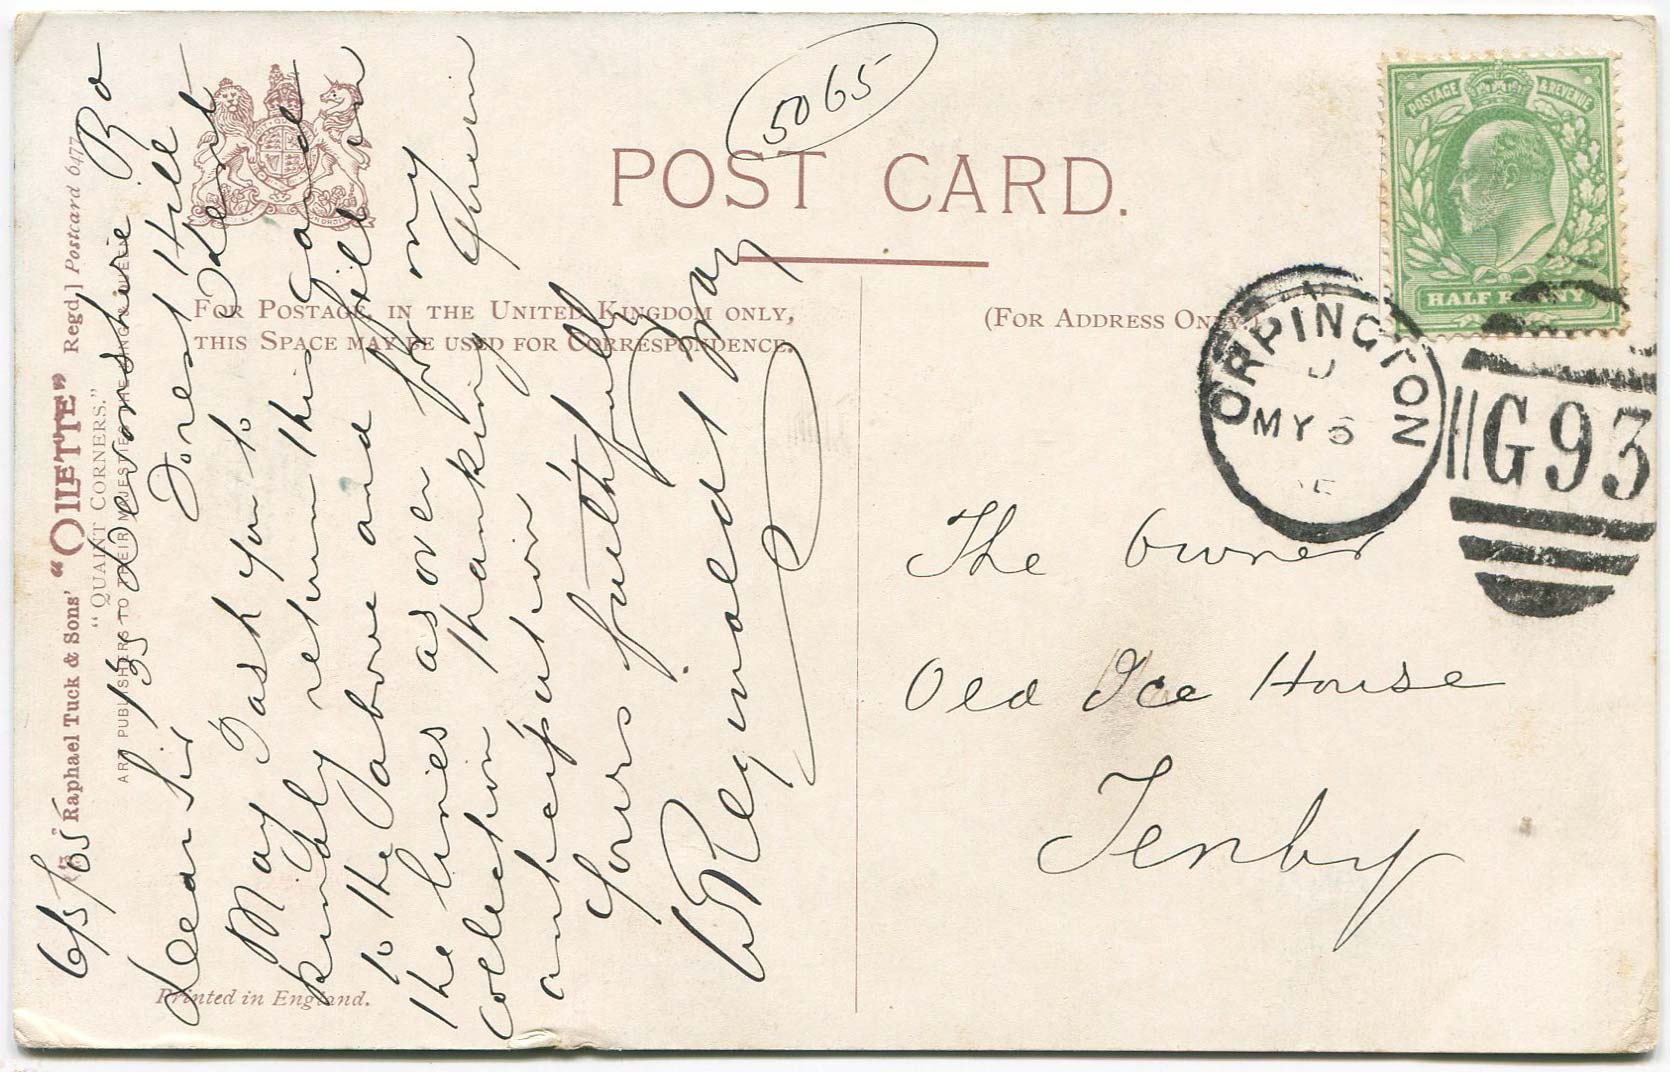 5065
POST CARD.
FOR POSTAGE IN THE UNITED KINGDOM ONLY,
THIS SPACE MAY BE USED FOR CORRESPONDENCE.
(FOR ADDRESS ONLY.)
POSTAGE & REVENUE
HALF PENNY
ORPINGTON
MY 6
G93
Raphael Tuck & Sons' "OILETTE" Regd.] Postcard 6477
"QUAINT CORNERS."
ART PUBLISHERS TO THEIR MAJESTIES THE KING & QUEEN
Printed in England.
6/5/05
135 Devonshire Ro
Forest Hill
Dear Sir
Kent
May I ask you to
kindly return this card
to the above and fill in
the lines as over for my
collection Thanking you in
anticipation
Yours faithfully
W Reginald May
The Owner
Old Ice House
Tenby